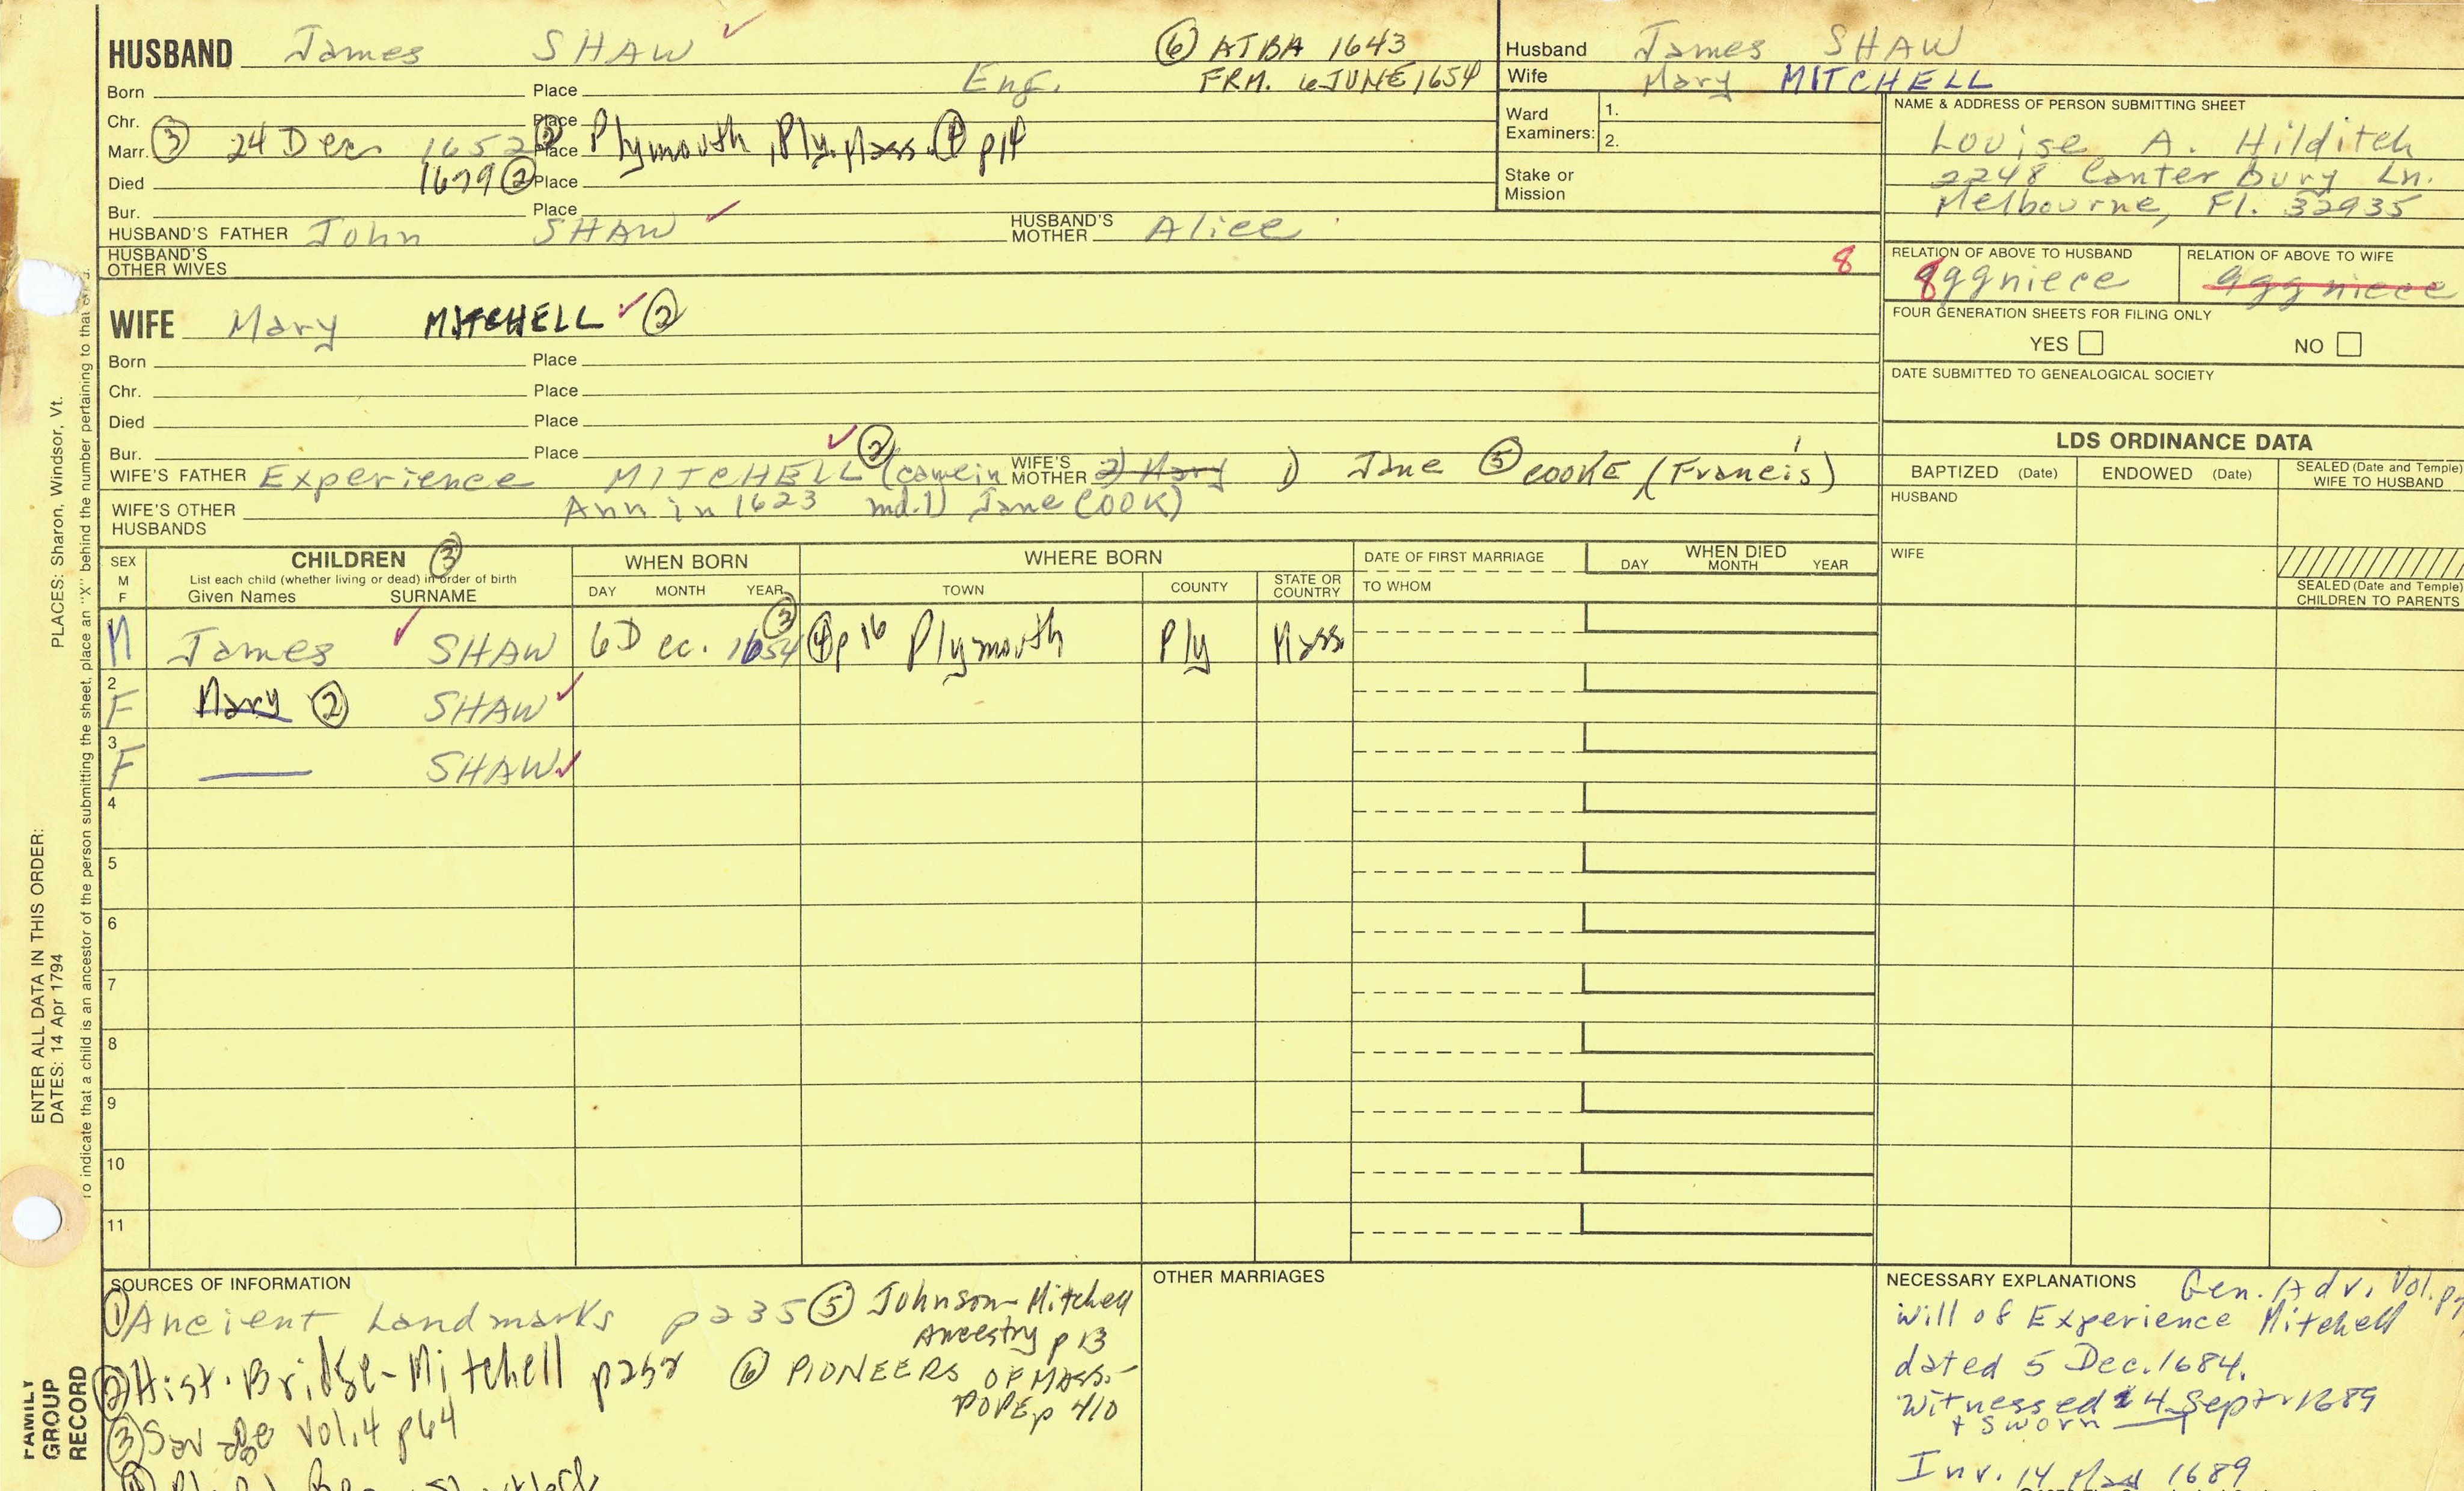 HUSBAND James SHAW ✓ ⑥ ATBA 1643
Eng. FRM. 6 JUNE 1654
Born Place
Chr. Place
Marr. ③ 24 Dec 1652 ② Place Plymouth, Ply. Mass. ④ p14
Died 1679 ② Place
Bur. Place
HUSBAND'S FATHER John SHAW ✓ HUSBAND'S MOTHER Alice
HUSBAND'S OTHER WIVES
8
Husband James SHAW
Wife Mary MITCHELL
Ward Examiners: 1.
2.
Stake or Mission
NAME & ADDRESS OF PERSON SUBMITTING SHEET
Louise A. Hilditch
2248 Canterbury Ln.
Melbourne, Fl. 32935
RELATION OF ABOVE TO HUSBAND RELATION OF ABOVE TO WIFE
8ggniece ggg niece
FOUR GENERATION SHEETS FOR FILING ONLY
YES NO
DATE SUBMITTED TO GENEALOGICAL SOCIETY
WIFE Mary MITCHELL ✓ ②
Born Place
Chr. Place
Died Place
Bur. Place
WIFE'S FATHER Experience MITCHELL ✓ ② (came in WIFE'S MOTHER 2) Mary 1) Jane ⑤ COOKE (Francis)
Ann in 1623 md.1) Jane COOK)
WIFE'S OTHER HUSBANDS
LDS ORDINANCE DATA
BAPTIZED (Date) ENDOWED (Date) SEALED (Date and Temple) WIFE TO HUSBAND
HUSBAND
WIFE
SEALED (Date and Temple) CHILDREN TO PARENTS
SEX M F
CHILDREN ③
List each child (whether living or dead) in order of birth
Given Names SURNAME
WHEN BORN
DAY MONTH YEAR
WHERE BORN
TOWN COUNTY STATE OR COUNTRY
DATE OF FIRST MARRIAGE
TO WHOM
WHEN DIED
DAY MONTH YEAR
M James ✓ SHAW 6 Dec. 1654 ③ ④ p16 Plymouth Ply Mass
2 F Mary ② SHAW ✓
3 F — SHAW ✓
4
5
6
7
8
9
10
11
SOURCES OF INFORMATION
① Ancient Landmarks p235
② Hist. Bridge-Mitchell p252
③ Savage Vol.4 p64
⑤ Johnson-Mitchell
Ancestry p 13
⑥ PIONEERS OF MASS.-
POPE p 410
OTHER MARRIAGES
NECESSARY EXPLANATIONS Gen. Adv. Vol.
Will of Experience Mitchell
dated 5 Dec. 1684.
Witnessed 4 Sept 1689
+ sworn
Inv. 14 1689
PLACES: Sharon, Windsor, Vt.
ENTER ALL DATA IN THIS ORDER:
DATES: 14 Apr 1794
To indicate that a child is an ancestor of the person submitting the sheet, place an "X" behind the number pertaining to that
FAMILY GROUP RECORD